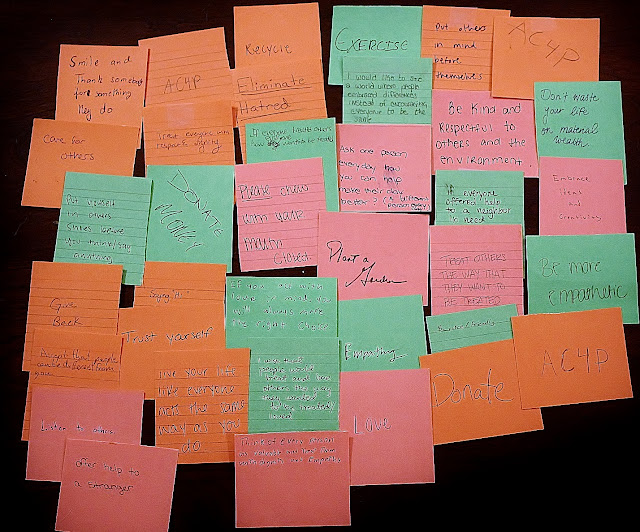 Smile and
Thank somebody
for something
they do
AC4P
Recycle
EXERCISE
Put others
in mind
before
themselves
AC4P
Eliminate
Hatred
I would like to see
a world where people
embraced differences
instead of
everyone to be the
same
BE KIND and
RESPECTFUL to
OTHERS and the
ENVIRONMENT
Don't waste
your life
on material
wealth
Care for
others
Treat everyone with
respect & dignity
If everyone treats others
how wants to be treated
Ask one person
everyday how
you can help
make their day
better?
Put yourself
in others
shoes before
you think/say
anything
DONATE
MONEY
Please chew
with your
mouth
closed!
If everyone
offered help
to a neighbor in
need
Embrace
Ideas and
Creativity
Plant a
Garden
TREAT OTHERS
THE WAY THAT
THEY WANT TO
BE TREATED
BE MORE
EMPATHETIC
Give
Back
Trust yourself
If you
will always make
the right choice
Empathy
Donate
AC4P
Accept that people
LIVE YOUR LIFE
LIKE EVERYONE
ACTS THE SAME
WAY AS YOU
DO
people would
others the way
they wanted
to be treated
Love
Listen to others
offer help to
a stranger